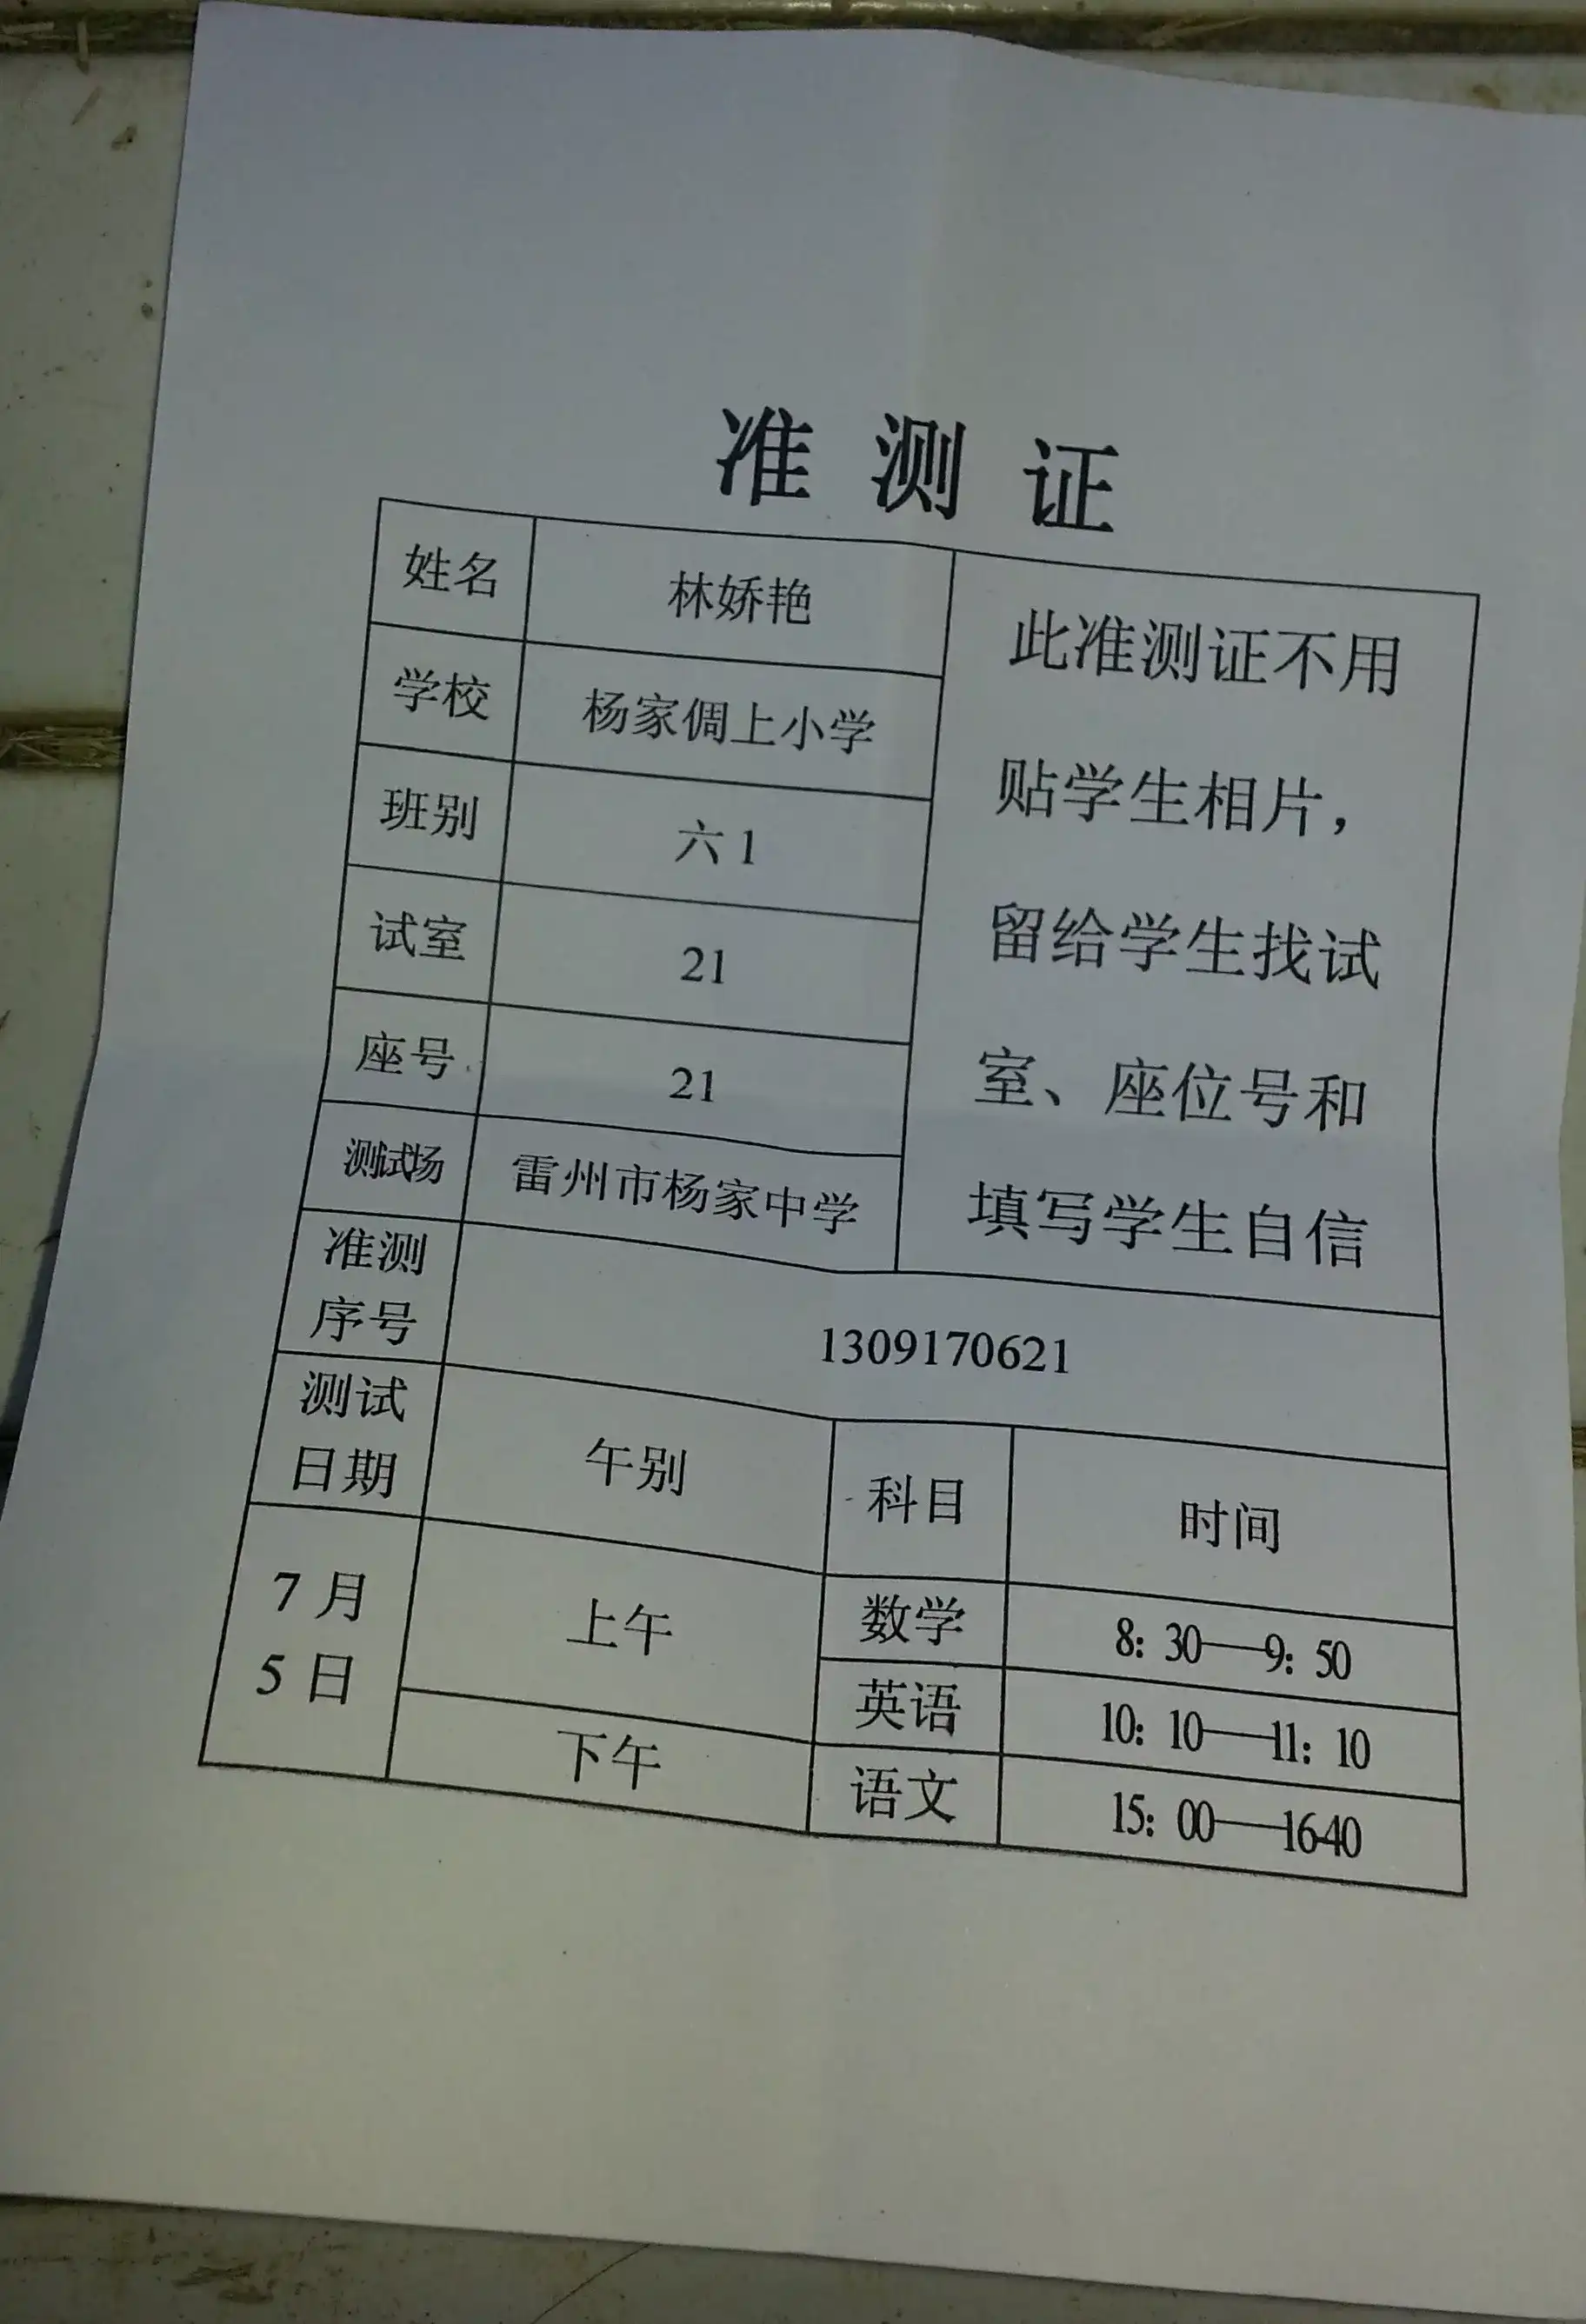 准测证
姓名 林娇艳
学校 杨家倜上小学
班别 六1
试室 21
座号 21
测试场 雷州市杨家中学
此准测证不用
贴学生相片，
留给学生找试
室、座位号和
填写学生自信
准测
序号
1309170621
测试
日期
午别 科目 时间
7月
5日
上午
数学 8：30——9：50
英语 10：10——11：10
下午 语文 15：00——1640